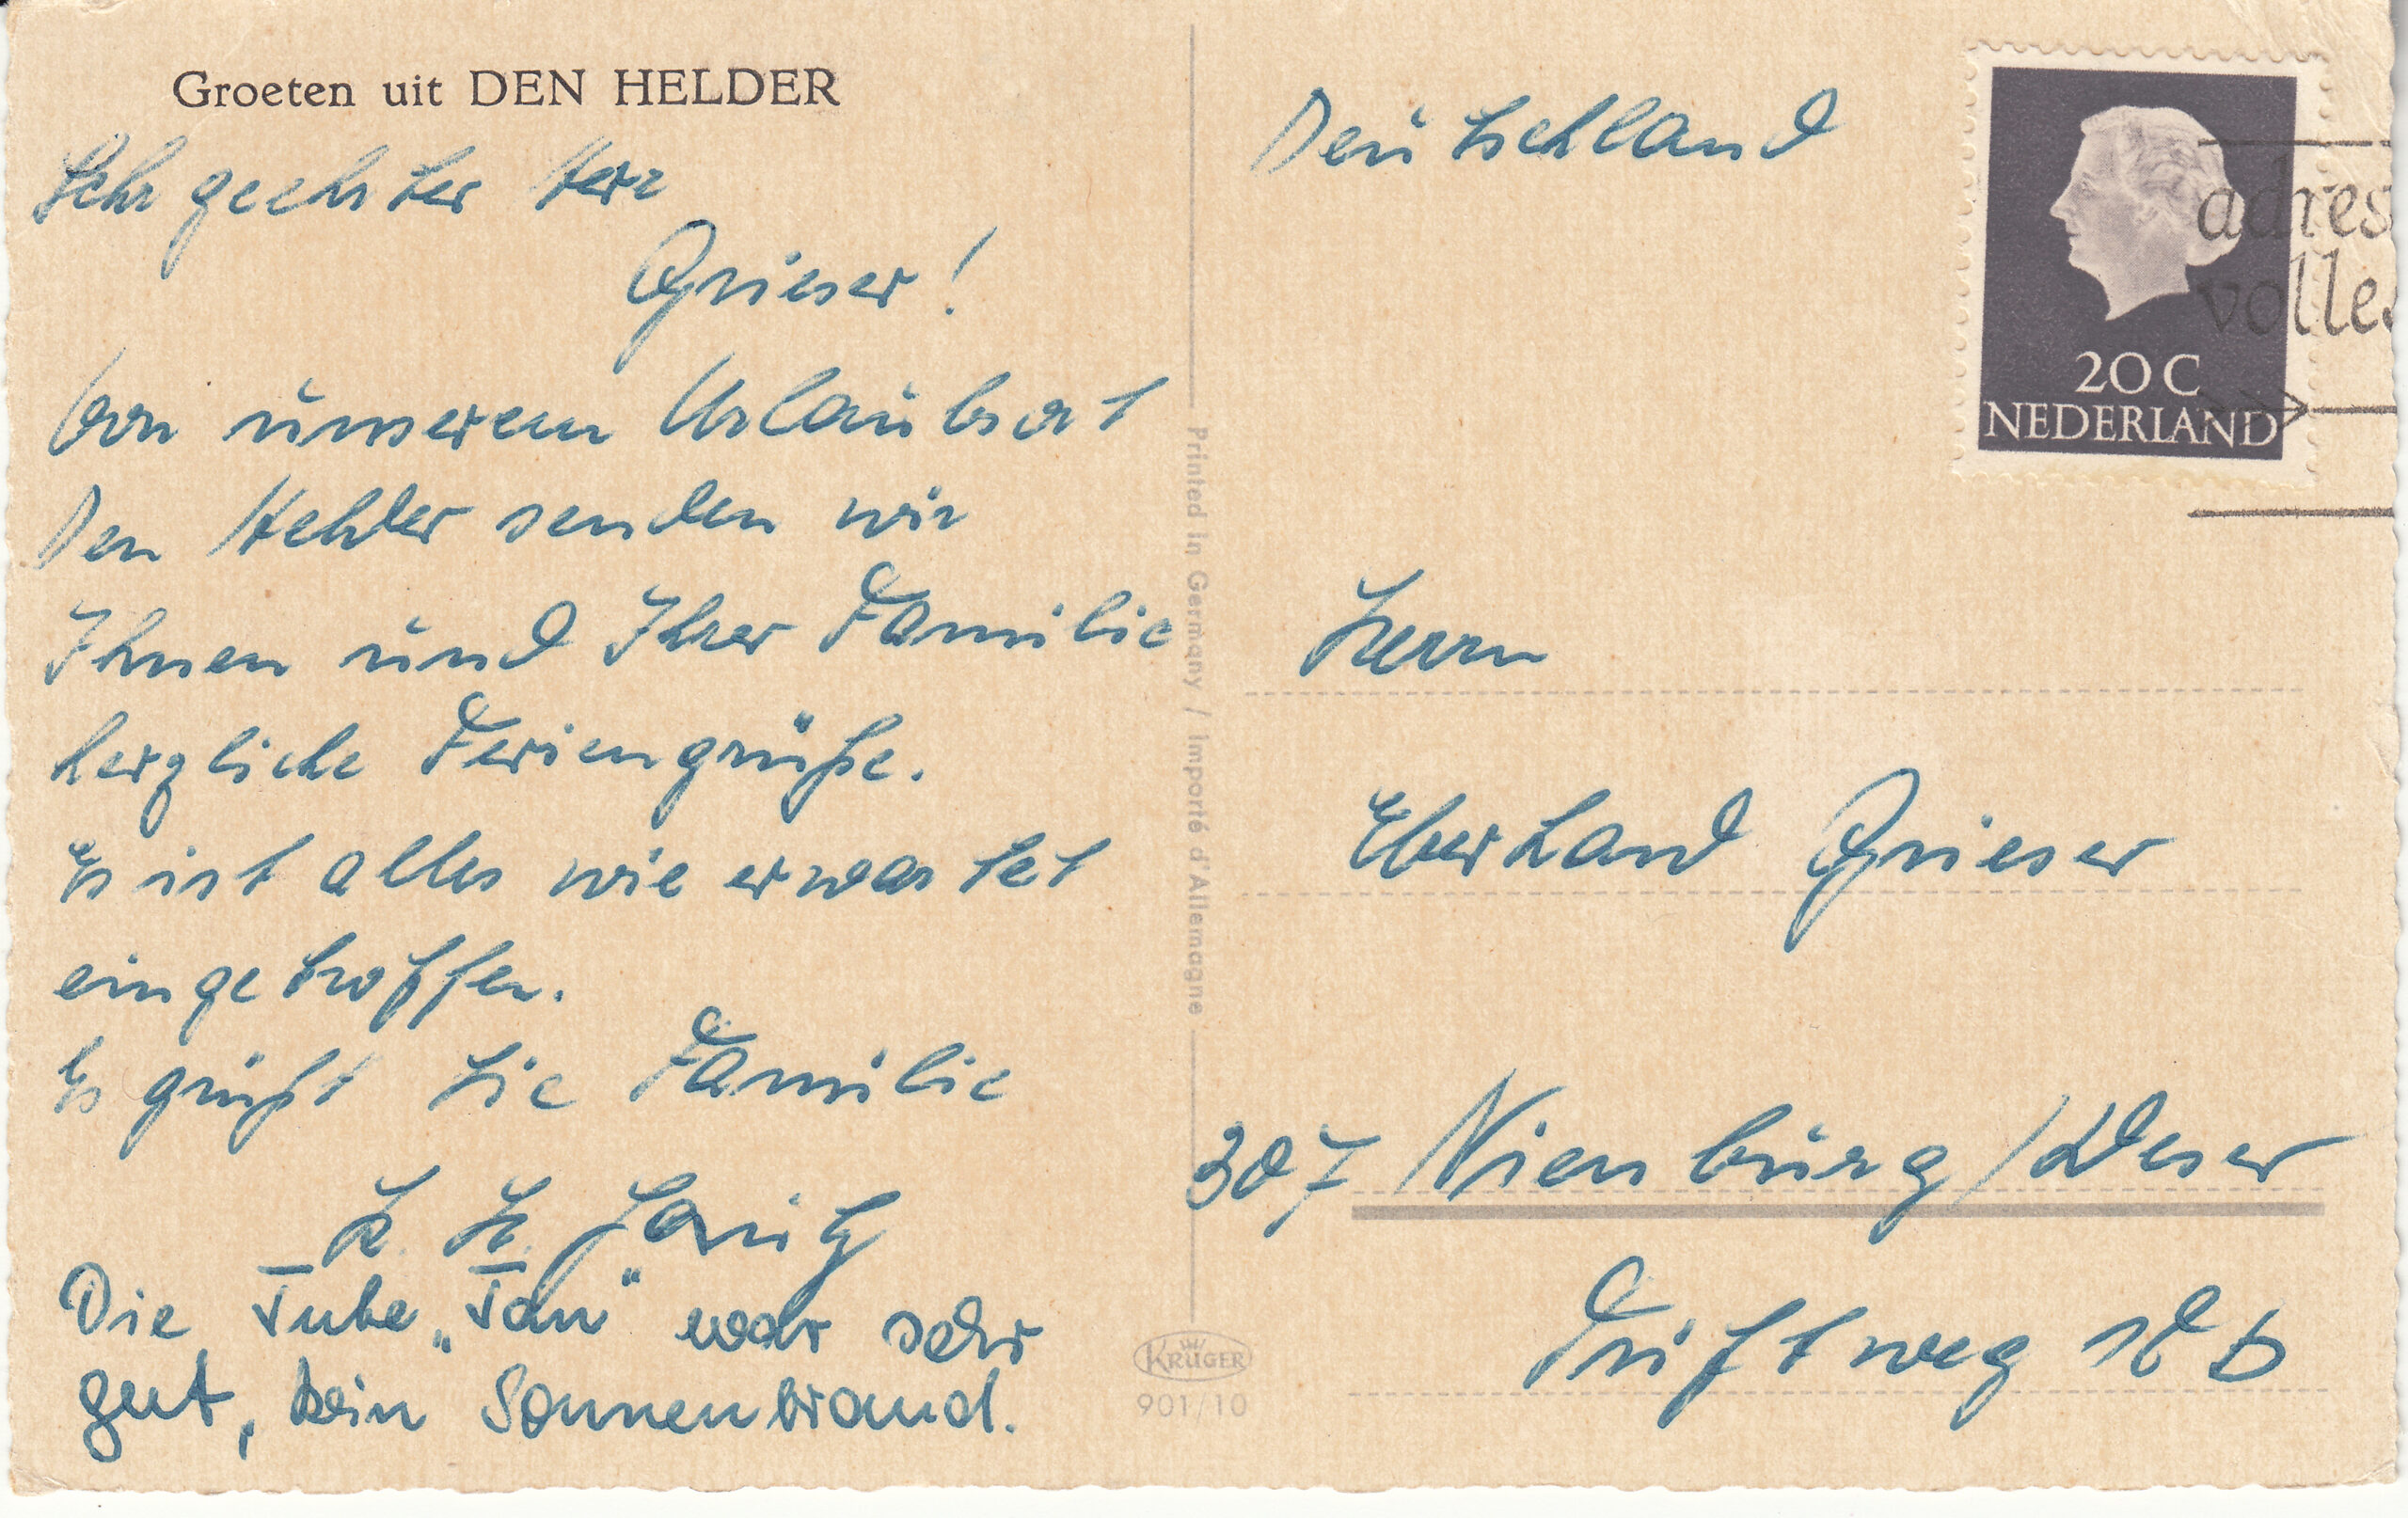 Groeten uit DEN HELDER
Sehr geehrter Herr
Grieser!
Von unserem Urlaubsort
Den Helder senden wir
Ihnen und Ihrer Familie
herzliche Feriengrüße.
Es ist alles wie erwartet
eingetroffen.
Es grüßt Sie Familie
K. H.
Die Tube „Tan" war sehr
gut, kein Sonnenbrand.
Printed in Germany / Importé d'Allemagne
KRÜGER
901/10
Deutschland
20 C
NEDERLAND
adres
volle
Herrn
Eberhard Grieser
307 Nienburg/Weser
Triftweg